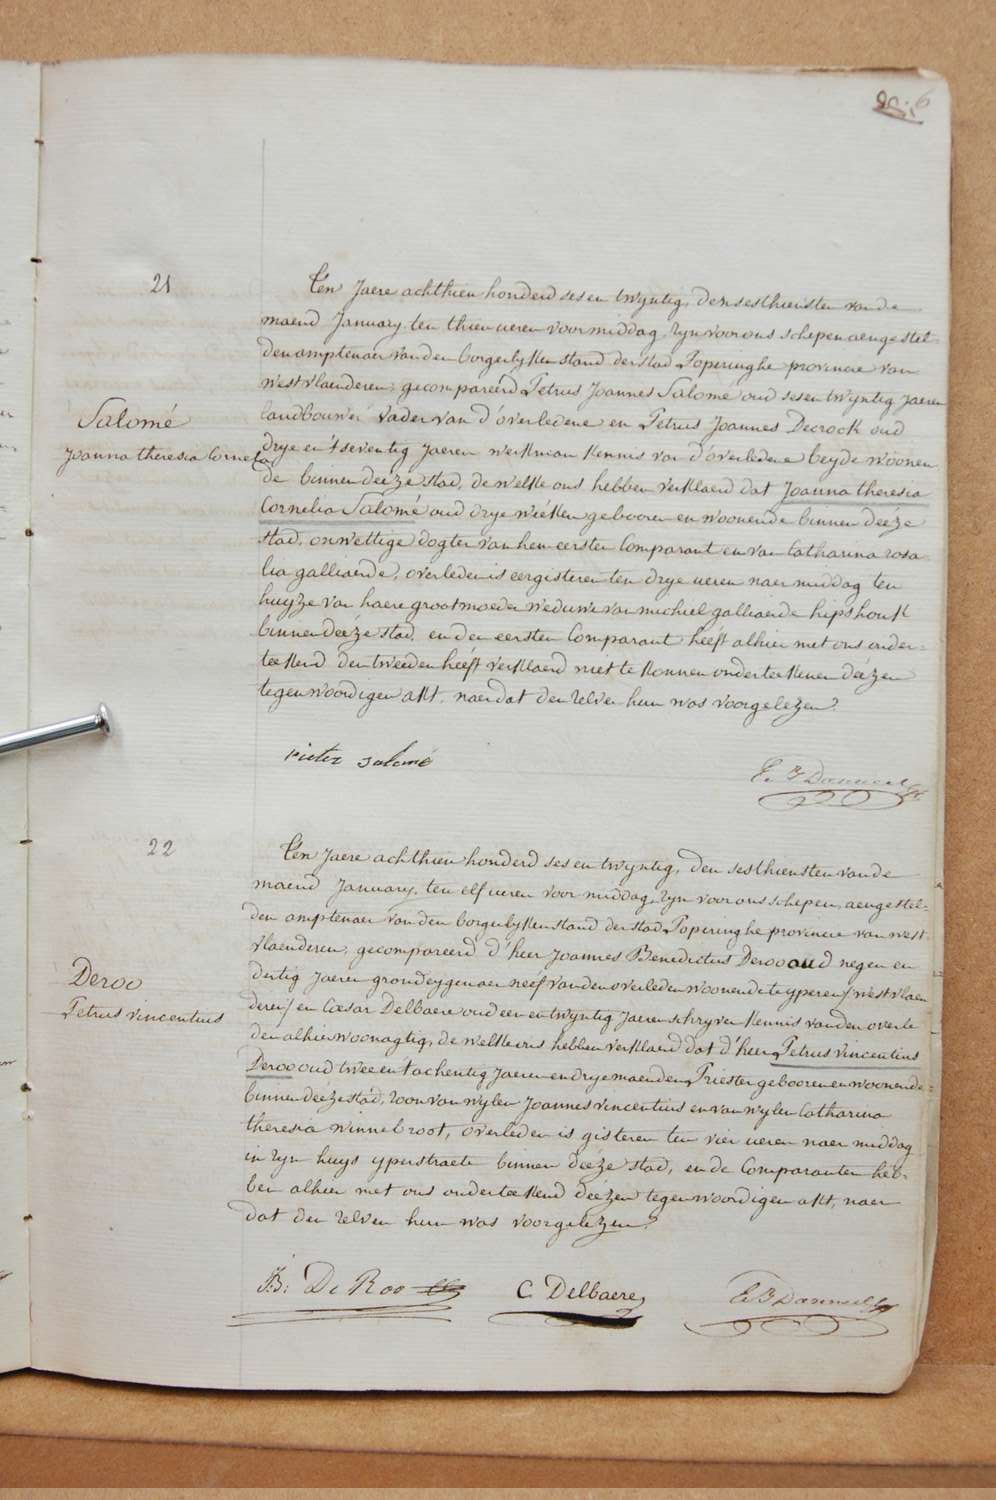 6
21
Salomé
Joanna theresia Cornelia
Ten Jaere achthien honderd ses en twyntig, den sesthiensten van de
maend January, ten thien ueren voormiddag, zyn voor ons schepen aengestel-
den amptenaer van den borgerlyken stand der stad Poperinghe provincie van
westvlaenderen, gecompareérd Petrus Joannes Salomé oud ses en twyntig Jaeren
landbouwer vader van d'overledene en Petrus Joannes Decrock oud
drye en t'seventig Jaeren werkman kennis van d'overledene beyde woonen
de binnen deéze stad, de welke ons hebben verklaerd dat Joanna theresia
Cornelia Salomé oud drye wéeken gebooren en woonende binnen deéze
stad, onwettige dogter van hem eersten Comparant en van Catharina rosa
lia galliaerde, overleden is eergisteren ten drye ueren naer middag ten
huyze van haere grootmoeder weduwe van michiel galliaerde hipshouk
binnen deéze stad, en den eersten Comparant heéft alhier met ons onder=
teekend den tweeden heéft verklaerd niet te konnen onderteekenen deézen
tegenwoordigen akt, naer dat den zelven hun was voorgelezen.
pieter Salomé
22
Deroo
Petrus vincentius
Ten Jaere achthien honderd ses en twyntig, den sesthiensten van de
maend January, ten elf ueren voor middag, zyn voor ons schepen, aengestel-
den amptenaer van den borgerlyken stand der stad Poperinghe provincie van west-
vlaenderen, gecompareerd d'heer Joannes Benedictus Deroo oud negen en
dertig Jaeren grondeygenaer neéf van den overleden woonende te yperen (westvlaen
deren) en Cæsar Delbaere oud een en twyntig Jaeren schryver kennis van den overle
den alhier woonagtig, de welke ons hebben verklaerd dat d'heer Petrus vincentius
Deroo oud twee en tachentig Jaeren en drye maenden Priester gebooren en woonende
binnen deéze stad, zoon van wylen Joannes vincentius en van wylen Catharina
theresia winnebroot, overleden is gisteren ten vier ueren naer middag
in zyn huys yperstraete binnen deéze stad, en de Comparanten heb-
ben alhier met ons onderteekend deézen tegenwoordigen akt, naer
dat den zelven hun was voorgelezen.
J: B: De Roo
C. Delbaere